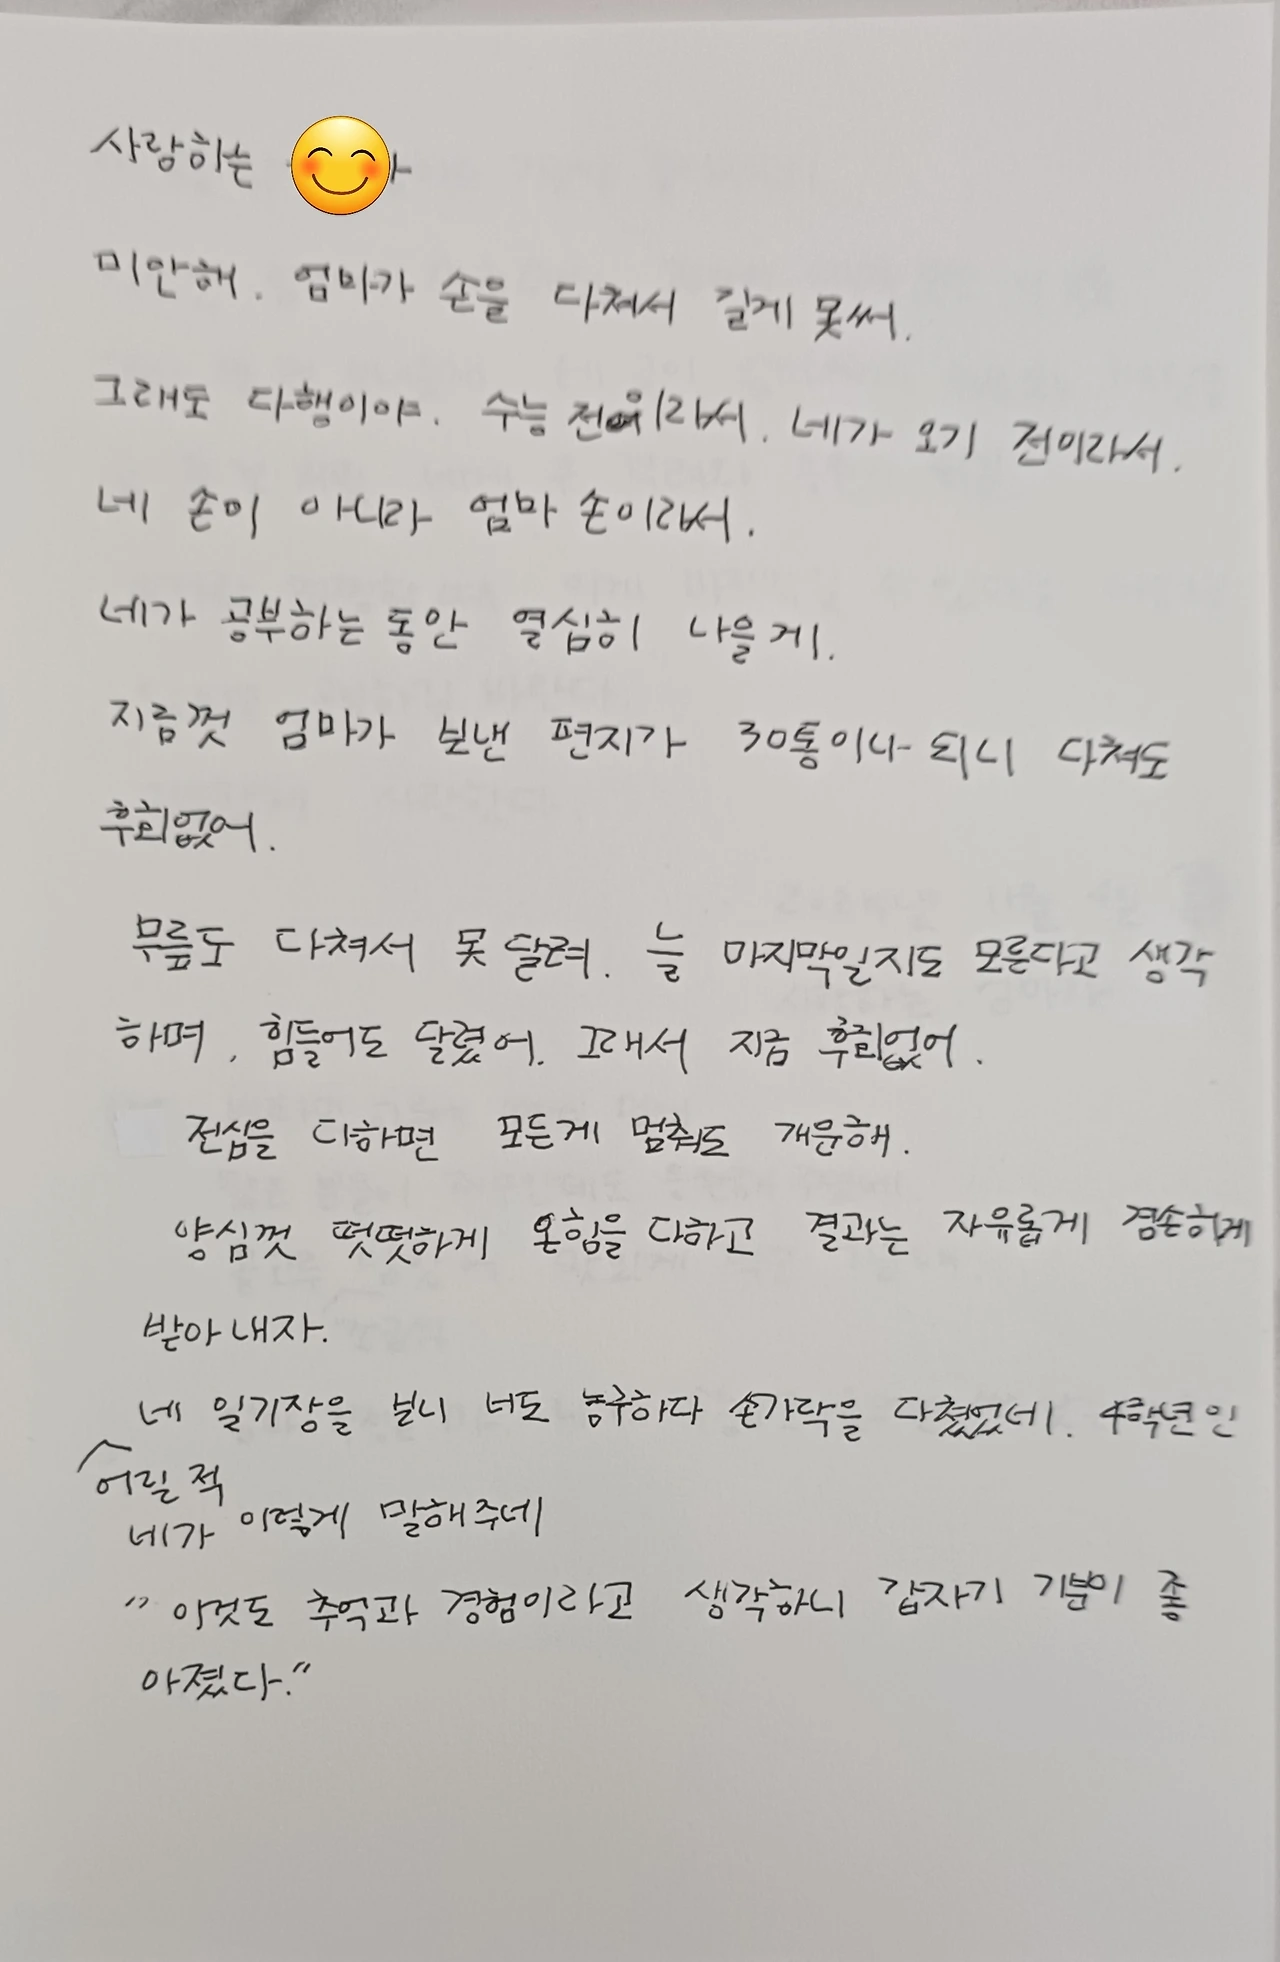 사랑하는
미안해. 엄마가 손을 다쳐서 길게 못써.
그래도 다행이야. 수능 전이라서. 네가 오기 전이라서.
네 손이 아니라 엄마 손이라서.
네가 공부하는 동안 열심히 나을게.
지금껏 엄마가 보낸 편지가 30통이나 되니 다쳐도
후회없어.
무릎도 다쳐서 못 달려. 늘 마지막일지도 모른다고 생각
하며, 힘들어도 달렸어. 그래서 지금 후회없어.
전심을 다하면 모든게 멈춰도 개운해.
양심껏 떳떳하게 온힘을 다하고 결과는 자유롭게 겸손하게
받아내자.
네 일기장을 보니 너도 농구하다 손가락을 다쳤었네. 4학년인
어릴 적
네가 이렇게 말해주네
"이것도 추억과 경험이라고 생각하니 갑자기 기분이 좋
아졌다."